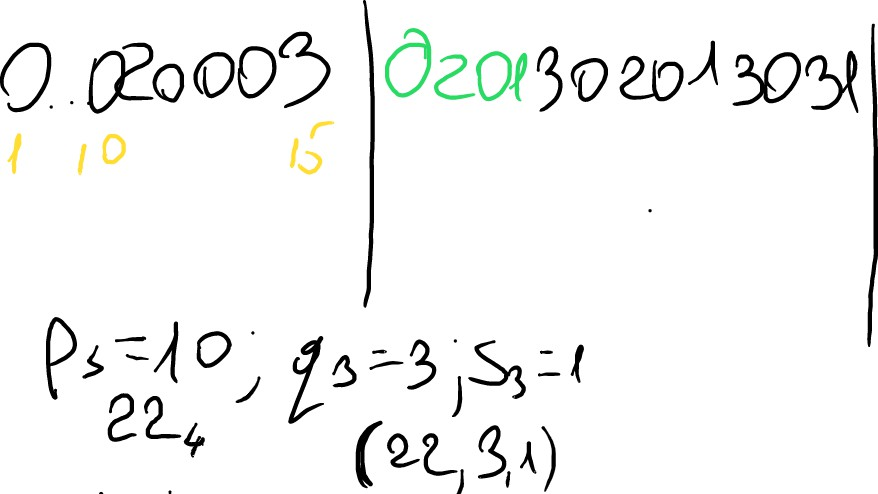 0..020003 | 0201302013031 |
1 10 15
P₃=10; q₃=3; S₃=1
22₄
(22,3,1)